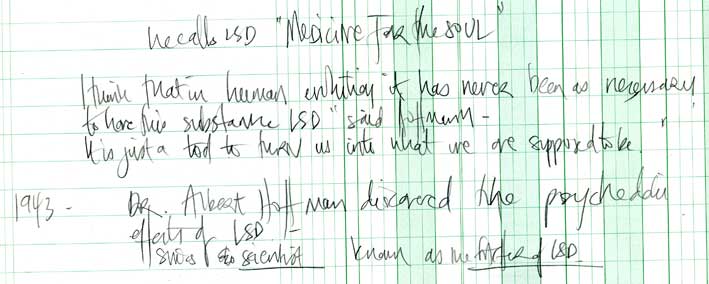 he calls LSD "Medicine For the soul"
I think that in human evolution it has never been as necessary
to have this substance LSD" said Hoffman -
It is just a tool to turn us into what we are supposed to be."
1943 - DR. Albert Hoffman discovered the psychedelic
effects of LSD -
swiss scientist known as the father of LSD